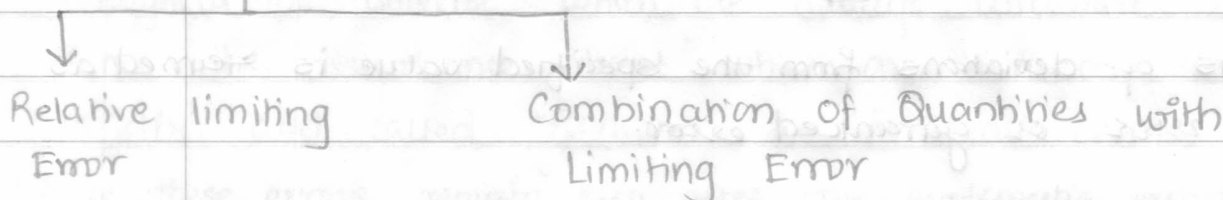 Relative limiting Combination of Quantities with
Error Limiting Error